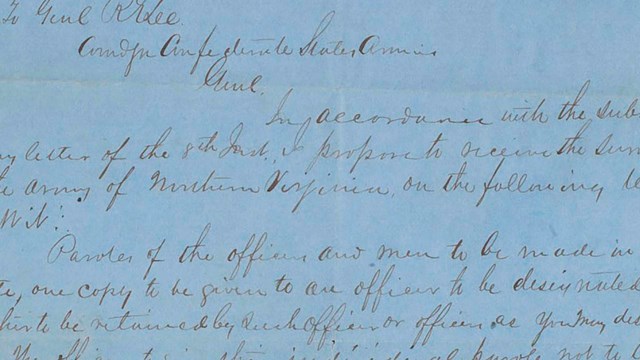 To Genl R E Lee
Comdg Confederate States Armies
Genl.
In accordance with the subs
my letter of the 8th Inst. I propose to receive the surr
he army of Northern Virginia, on the following te
Wit:
Paroles of the officers and men to be made in
te, one copy to be given to an officer to be designated
ther to be retained by such officer or officers as you may des
not to